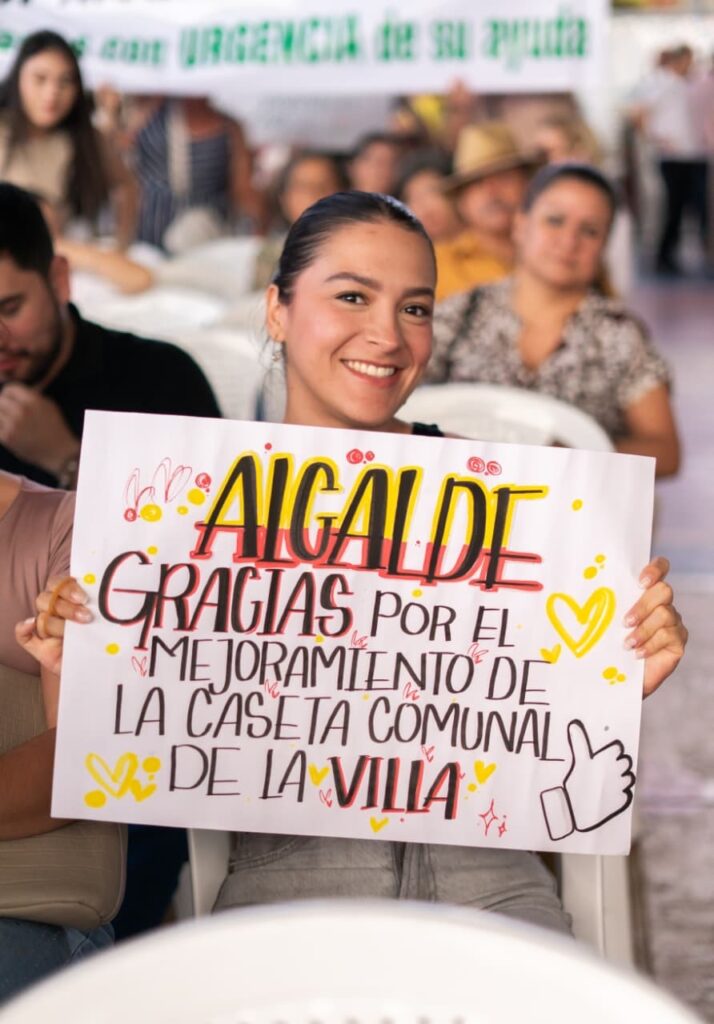 con URGENCIA de su ayuda
ALCALDE
GRACIAS POR EL
MEJORAMIENTO DE
LA CASETA COMUNAL
DE LA VILLA